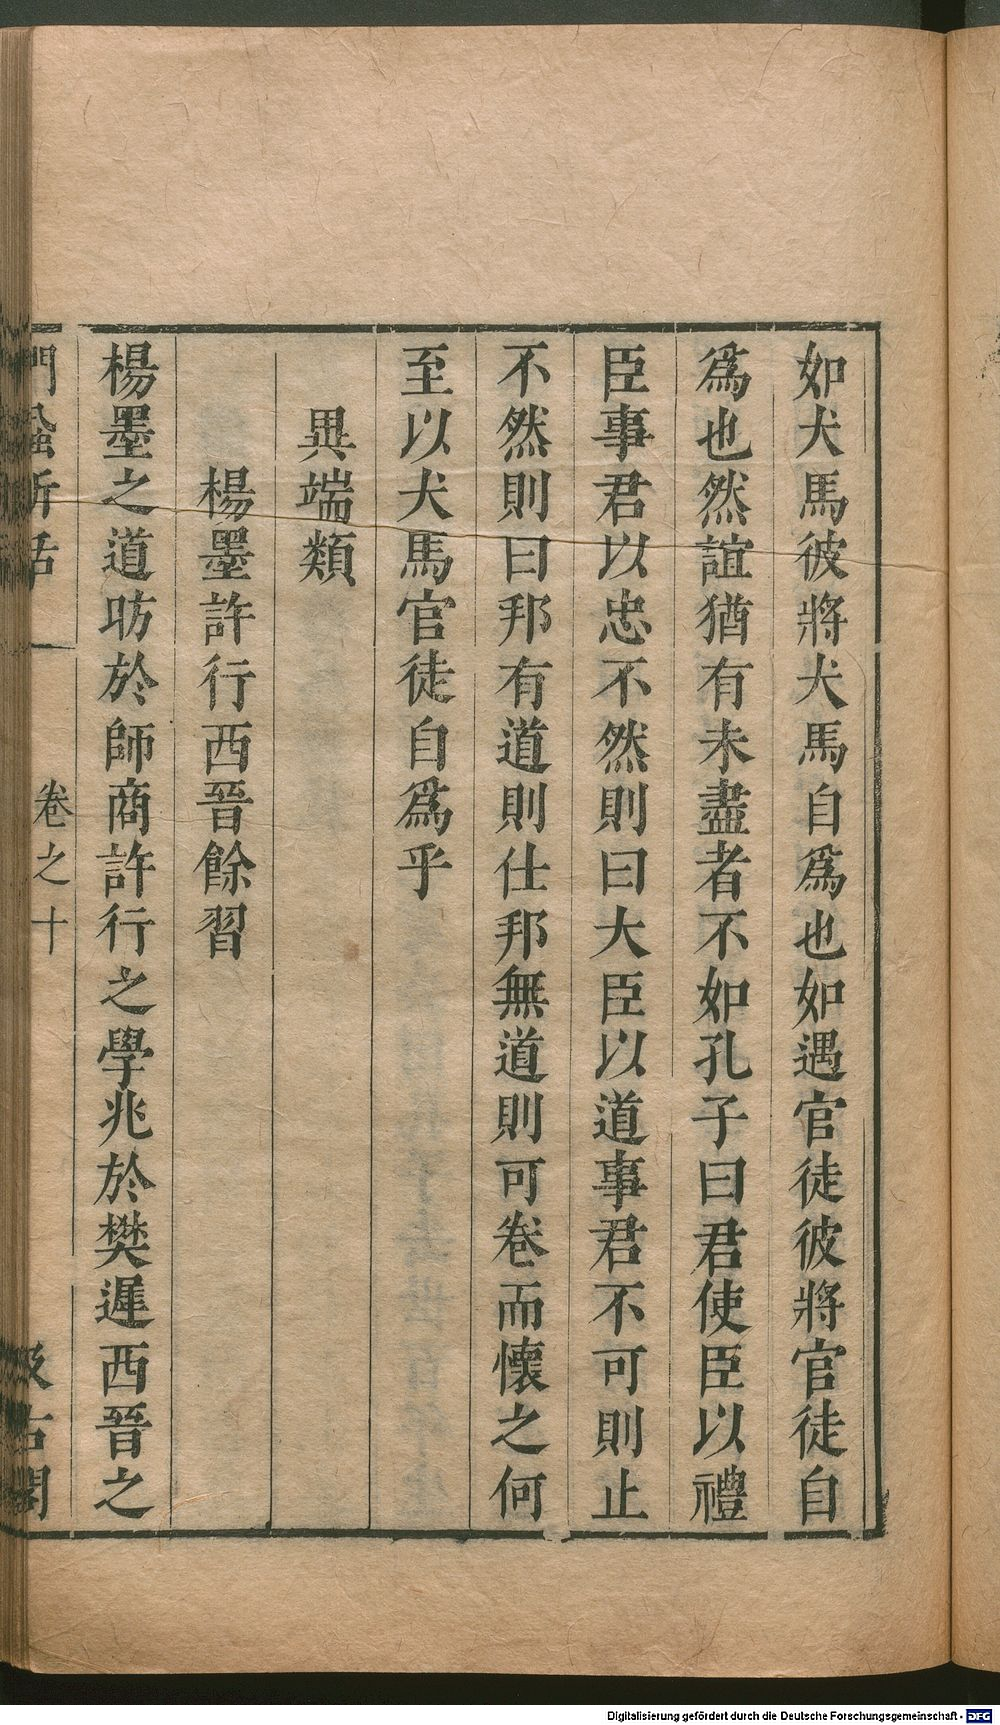 如犬馬彼將犬馬自爲也如遇官徒彼將官徒自
爲也然誼猶有未盡者不如孔子曰君使臣以禮
臣事君以忠不然則曰大臣以道事君不可則止
不然則曰邦有道則仕邦無道則可卷而懷之何
至以犬馬官徒自爲乎
異端類
楊墨許行西晉餘習
楊墨之道昉於師商許行之學兆於樊遲西晉之
卷之十
古閣
Digitalisierung gefördert durch die Deutsche Forschungsgemeinschaft - DFG